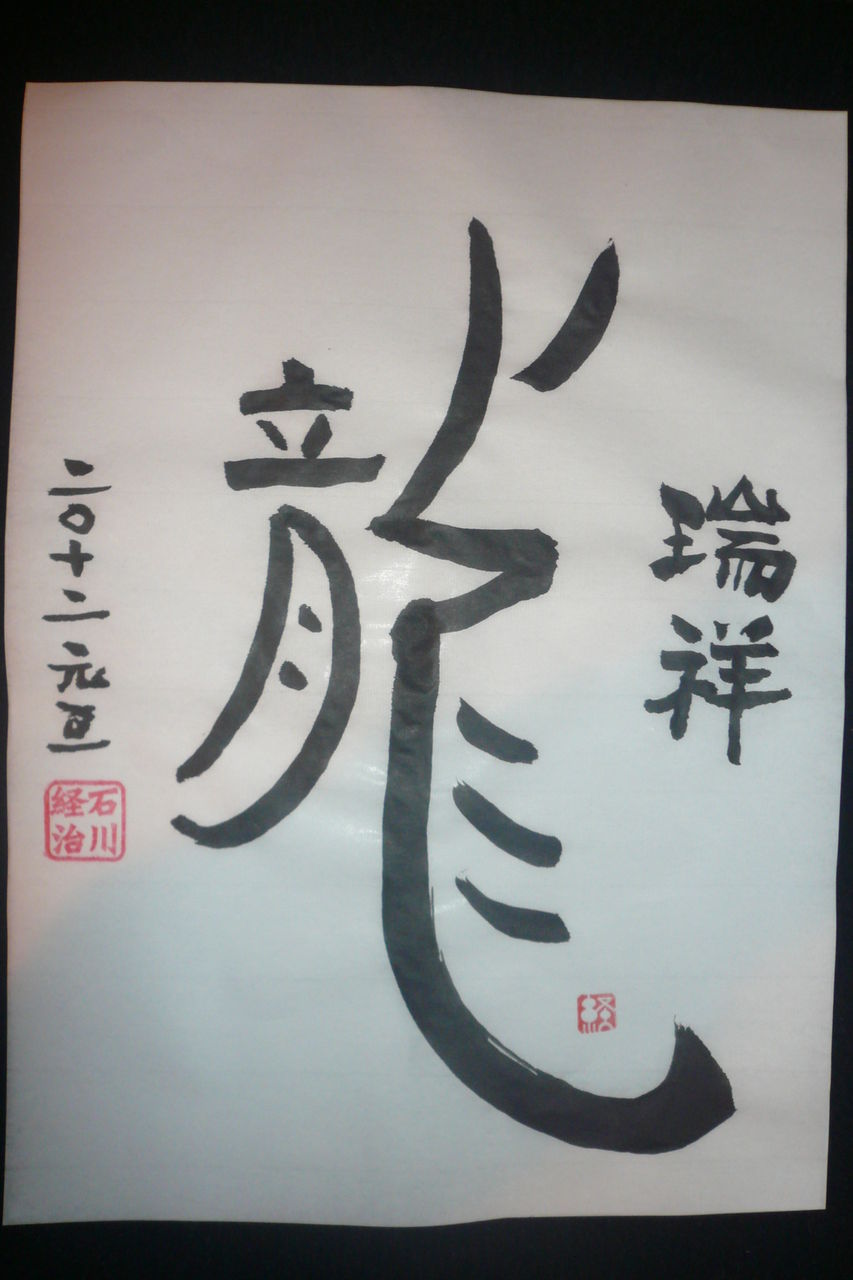 瑞祥
龍
経
二〇十二元旦
石川
経治